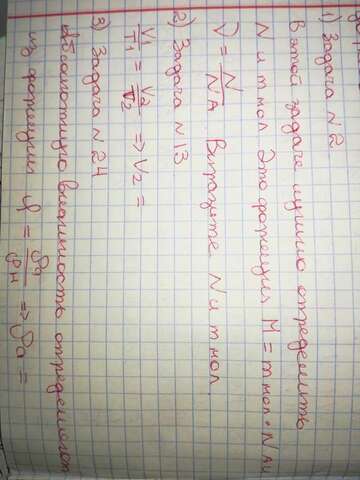 1) Задача N 2
В этой задаче нужно определить
N и m мол. Это формулы M = m мол • NA и
ν = N/NA Выразите N и m мол.
2) Задача N 13
V1/T1 = V2/T2 => V2 =
3) Задача N 24
Абсолютную влажность определяют
из формулы φ = ρa/ρн => ρa =